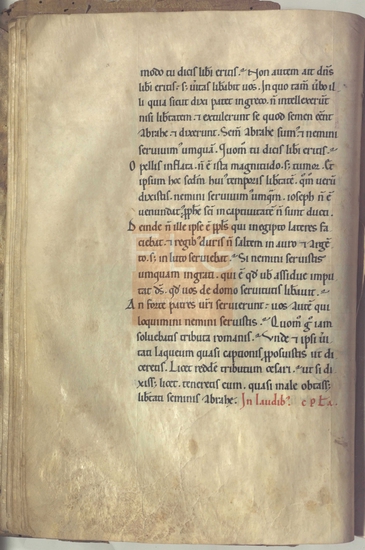 modo tu dicis libi eritis. Non autem ait dn̄s
libi eritis: s; ūitas libabit uos. In quo tam̄ ūbo il
li quia sicut dixi patet ingreco. n̄ intellexerūt
nisi libtatem. ⁊ extulerunt se quod semen eēnt
Abrahe. ⁊ dixerunt. Sem̄ Abrahe sum᷒. ⁊ nemini
seruiuim᷒ umquā. Quom̄ tu dicis libi eritis.
O pellis inflata. n̄ ē ista magnitudo. s; tumor. Et
ipsum hoc scdm̄ hui᷒ temporis libtatē. qm̄ uerū
dixistis. nemini seruiuim᷒ umqm̄. ioseph n̄ ē
uenundat᷒. pphe sc̄i in captiuitatē n̄ sunt ducti.
Deinde n̄ ille ipse ē ppl̄s qui inegipto lateres fa
ciebat. ⁊ regib᷒ duris n̄ saltem in auro ⁊ argē
to. s; in luto seruiebat. Si nemini seruistis
umquam ingrati. qui ē qd̄ ub assidue impu
tat ds̄. qd̄ uos de domo seruitutis libauit.
An forte patres ur̄i seruierunt. uos autē qui
loquimini nemini seruistis. Quom̄ g̊ iam
soluebatis tributa romanis. Vnde ⁊ ipsi ūi
tati laqueum quasi captionis pposuistis ut di
ceretis. Licet reddē tributum cesari. ut si di
xiss; licet. teneretis eum. quasi male obtass;
libtati seminis Abrahe. In laudib᷒.